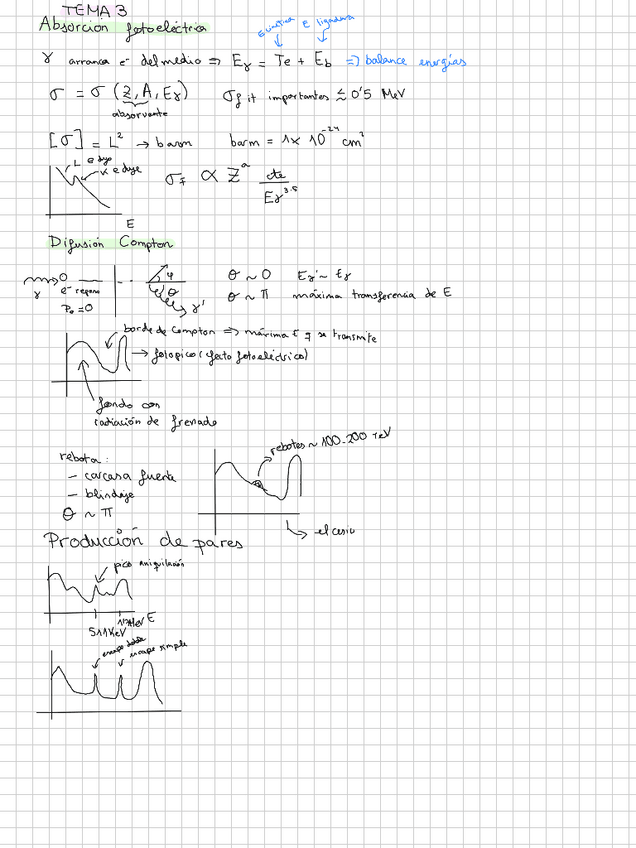 TEMA 3
Absorción fotoeléctrica
E cinética E ligadura
γ arranca e⁻ del medio ⇒ Eγ = Te + Eb ⇒ balance energías
σ = σ (Z, A, Eγ) σf it importantes ≲ 0'5 MeV
absorvente
[σ] = L² → barm barm = 1x 10⁻²⁴ cm²
L edge
K edge
σf ∝ Zᵃ cte / Eγ³·⁵
E
Difusión Compton
γ e⁻ reposo φ θ γ' θ ~ 0 Eγ' ~ Eγ
Po = 0 θ ~ π máxima transferencia de E
borde de Compton ⇒ máxima E q se transmite
→ fotopico (efecto fotoeléctrico)
fondo con
radiación de frenado
rebotes ~ 100-200 KeV
rebota:
– carcasa fuente
– blindaje
θ ~ π
→ el cesio
Producción de pares
pico aniquilación
E
511 KeV
escape doble escape simple